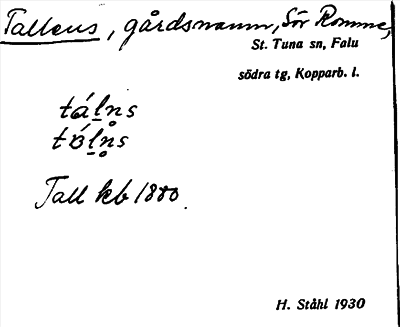 Tallens, gårdsnamn, Sör Romme,
St. Tuna sn, Falu
södra tg, Kopparb. l.
tál̠n̥s
tɒ́l̠n̥s
Tall kb 1880.
H. Ståhl 1930